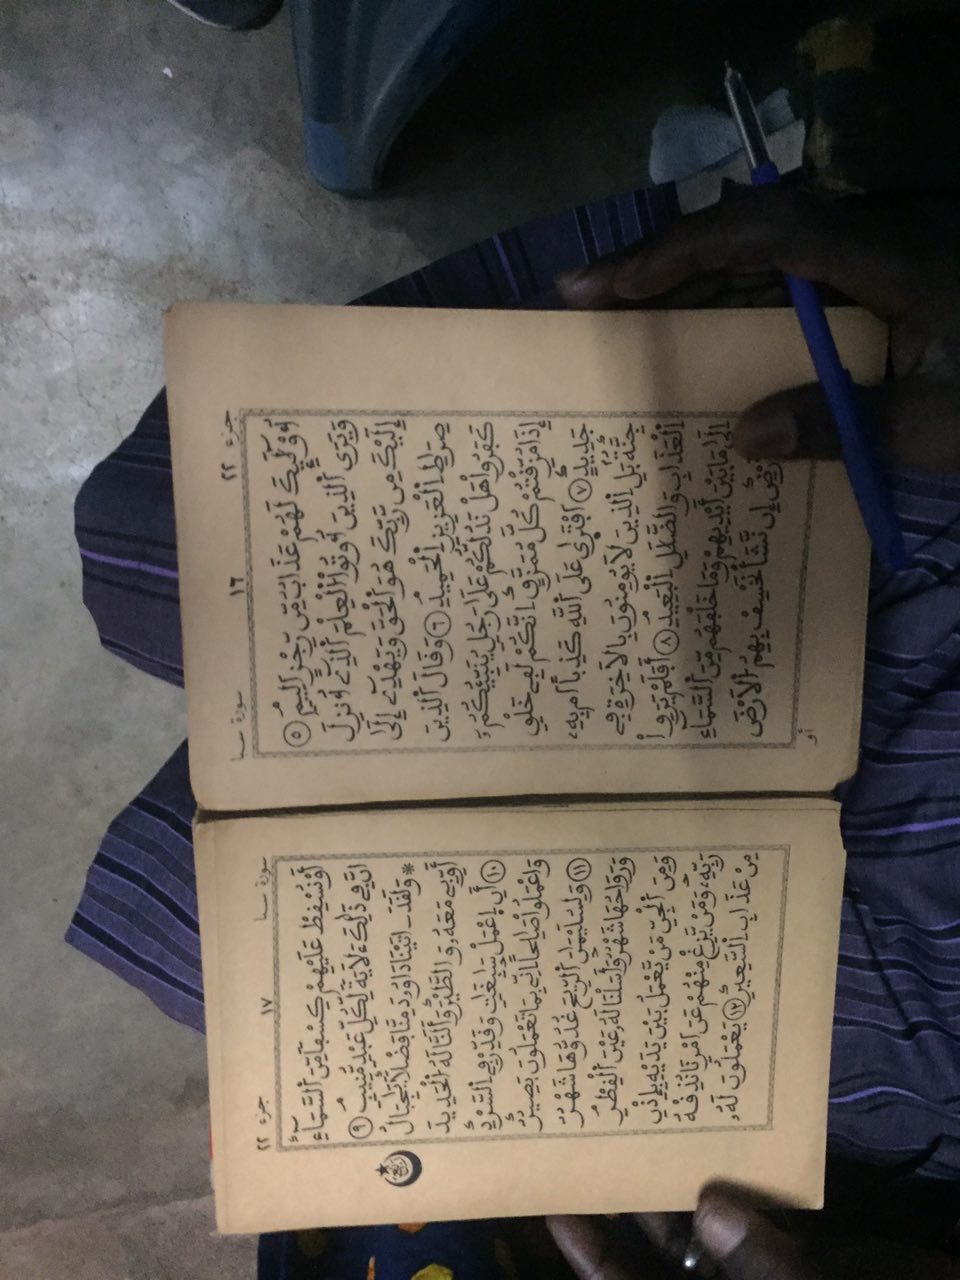 جزء ٢٢ ١٦ سورة سبا
أُوْلَٰٓئِكَ لَهُمْ عَذَابٌ مِّن رِّجْزٍ أَلِيمٍ ٥
وَيَرَى ٱلذِينَ أُوتُوا۟ ٱلْعِلْمَ ٱلذِےٓ أُنزِلَ
إِلَيْكَ مِن رَّبِّكَ هُوَ ٱلْحَقَّ وَيَهْدِےٓ إِلَىٰ
صِرَٰطِ ٱلْعَزِيزِ ٱلْحَمِيدِ ٦ وَقَالَ ٱلذِينَ
كَفَرُوا۟ هَلْ نَدُلُّكُمْ عَلَىٰ رَجُلٍ يُنَبِّئُكُمُۥٓ
إِذَا مُزِّقْتُمْ كُلَّ مُمَزَّقٍ إِنَّكُمْ لَفِے خَلْقٍ
جَدِيدٍ ٧ اَفْتَرَىٰ عَلَى ٱللَّهِ كَذِباً اَم بِهِۦ
جِنَّةُۢ بَلِ ٱلذِينَ لَا يُومِنُونَ بِالَاخِرَةِ فِے
ٱلْعَذَابِ وَٱلضَّلَٰلِ ٱلْبَعِيدِ ٨ أَفَلَمْ يَرَوِا۟
اِلَىٰ مَا بَيْنَ أَيْدِيهِمْ وَمَا خَلْفَهُم مِّنَ ٱلسَّمَآءِ
إِن نَّشَأْ نَخْسِفْ بِهِمُ ٱلَارْضَ
أو
سورة سبا ١٧ جزء ٢٢
أَوْ نُسْقِطْ عَلَيْهِمْ كِسْفاً مِّنَ ٱلسَّمَآءِ
انَّ فِے ذَٰلِكَ ءَلَايَةً لِّكُلِّ عَبْدٍ مُّنِيبٍ ٩
* وَلَقَدَ اٰتَيْنَا دَاوُۥدَ مِنَّا فَضْلاً يَٰجِبَالُ
أَوِّبِے مَعَهُۥ وَٱلطَّيْرَ وَأَلَنَّا لَهُ ٱلْحَدِيدَ
١٠ أَنِ اِعْمَلْ سَٰبِغَٰتٍ وَقَدِّرْ فِے ٱلسَّرْدِ
وَاعْمَلُوا۟ صَٰلِحاً اِنِّے بِمَا تَعْمَلُونَ بَصِيرٌ
١١ وَلِسُلَيْمَٰنَ ٱلرِّيحَ غُدُوُّهَا شَهْرٌ
وَرَوَاحُهَا شَهْرٌ وَأَسَلْنَا لَهُۥ عَيْنَ ٱلْقِطْرِ
وَمِنَ ٱلْجِنِّ مَنْ يَّعْمَلُ بَيْنَ يَدَيْهِ بِإِذْنِ
رَبِّهِۦ وَمَنْ يَّزِغْ مِنْهُمْ عَنَ اَمْرِنَا نُذِقْهُ
مِنْ عَذَابِ اِلسَّعِيرِ ١٢ يَعْمَلُونَ لَهُۥ